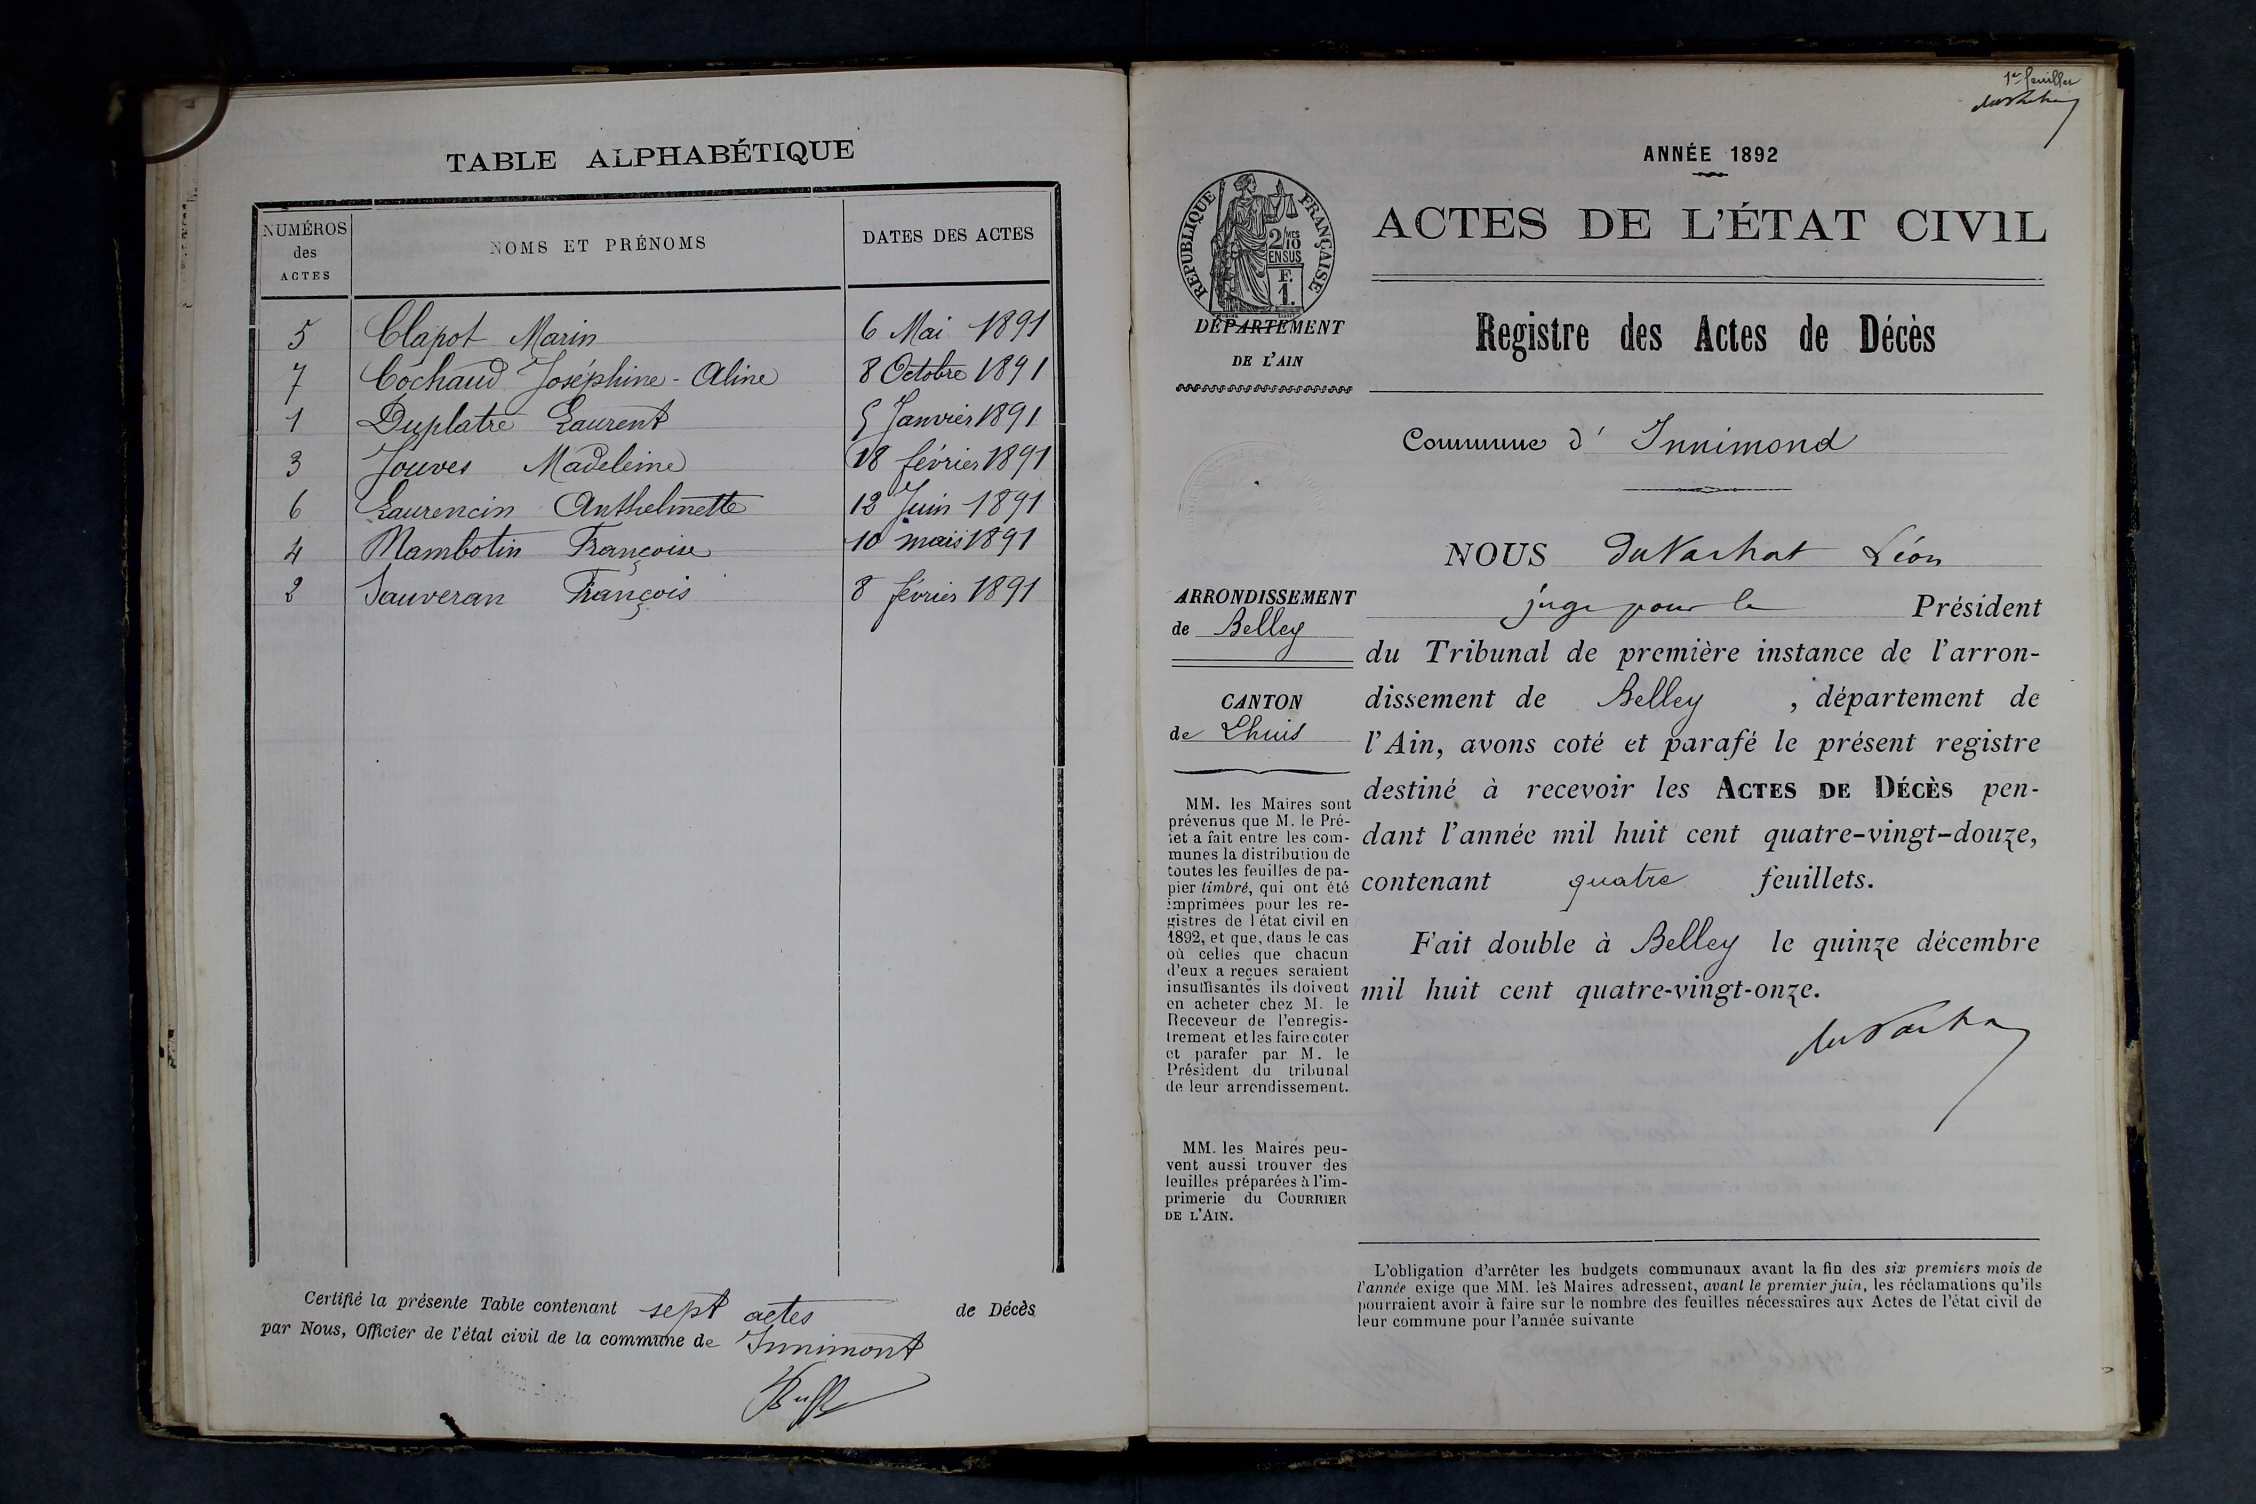 TABLE ALPHABÉTIQUE
NUMÉROS des ACTES NOMS ET PRÉNOMS DATES DES ACTES
5 Clapot Marin 6 Mai 1891
7 Cochaud Joséphine-Aline 8 Octobre 1891
1 Duplatre Laurent 5 Janvier 1891
3 Jouves Madeleine 18 février 1891
6 Laurencin Anthelmette 12 Juin 1891
4 Mambotin Françoise 10 mars 1891
2 Sauveran François 8 février 1891
Certifié la présente Table contenant sept actes de Décès
par Nous, Officier de l'état civil de la commune de Innimont
1er feuillet
ANNÉE 1892
RÉPUBLIQUE FRANÇAISE
2/10 MES
EN SUS
F.
1.
DÉPARTEMENT
DE L'AIN
ACTES DE L'ÉTAT CIVIL
Registre des Actes de Décès
Commune d' Innimond
ARRONDISSEMENT
de Belley
CANTON
de Lhuis
MM. les Maires sont
prévenus que M. le Pré-
fet a fait entre les com-
munes la distribution de
toutes les feuilles de pa-
pier timbré, qui ont été
imprimées pour les re-
gistres de l'état civil en
1892, et que, dans le cas
où celles que chacun
d'eux a reçues seraient
insuffisantes ils doivent
en acheter chez M. le
Receveur de l'enregis-
trement et les faire coter
et parafer par M. le
Président du tribunal
de leur arrondissement.
MM. les Maires peu-
vent aussi trouver des
feuilles préparées à l'im-
primerie du COURRIER
DE L'AIN.
NOUS duVachat Léon
juge pour le Président
du Tribunal de première instance de l'arron-
dissement de Belley , département de
l'Ain, avons coté et parafé le présent registre
destiné à recevoir les ACTES DE DÉCÈS pen-
dant l'année mil huit cent quatre-vingt-douze,
contenant quatre feuillets.
Fait double à Belley le quinze décembre
mil huit cent quatre-vingt-onze.
duVachat
L'obligation d'arrêter les budgets communaux avant la fin des six premiers mois de
l'année exige que MM. les Maires adressent, avant le premier juin, les réclamations qu'ils
pourraient avoir à faire sur le nombre des feuilles nécessaires aux Actes de l'état civil de
leur commune pour l'année suivante